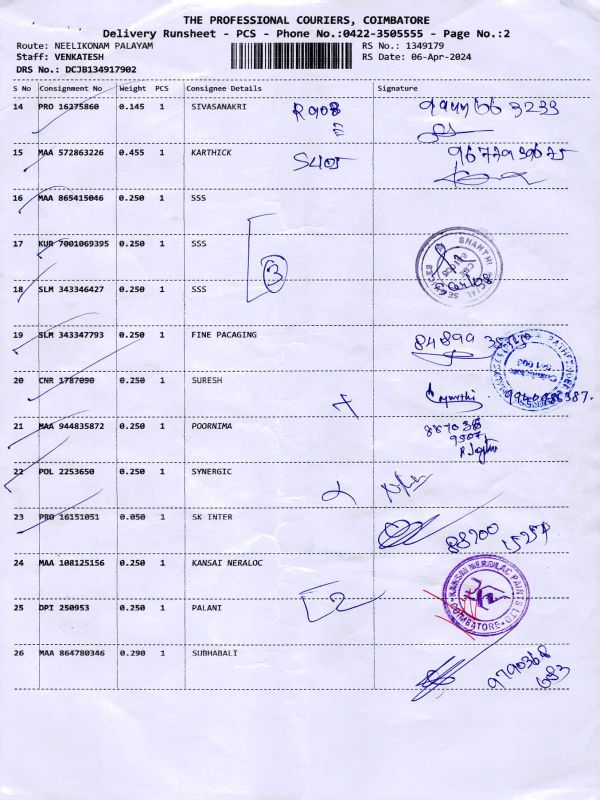 THE PROFESSIONAL COURIERS, COIMBATORE
Delivery Runsheet - PCS - Phone No.:0422-3505555 - Page No.:2
Route: NEELIKONAM PALAYAM RS No.: 1349179
Staff: VENKATESH RS Date: 06-Apr-2024
DRS No.: DCJB134917902
S No Consignment No Weight PCS Consignee Details Signature
14 PRO 16275860 0.145 1 SIVASANAKRI
15 MAA 572863226 0.455 1 KARTHICK S405
16 MAA 865415046 0.250 1 SSS
17 KUR 7001069395 0.250 1 SSS
3
SHANTHI SOCIAL SERVICES
18 SLM 343346427 0.250 1 SSS
19 SLM 343347793 0.250 1 FINE PACAGING
20 CNR 1787090 0.250 1 SURESH
21 MAA 944835872 0.250 1 POORNIMA
22 POL 2253650 0.250 1 SYNERGIC
23 PRO 16151051 0.050 1 SK INTER
24 MAA 108125156 0.250 1 KANSAI NERALOC
KANSAI NEROLAC PAINTS LTD
COIMBATORE
25 DPI 250953 0.250 1 PALANI 2
26 MAA 864780346 0.290 1 SUBHABALI
9790368
683